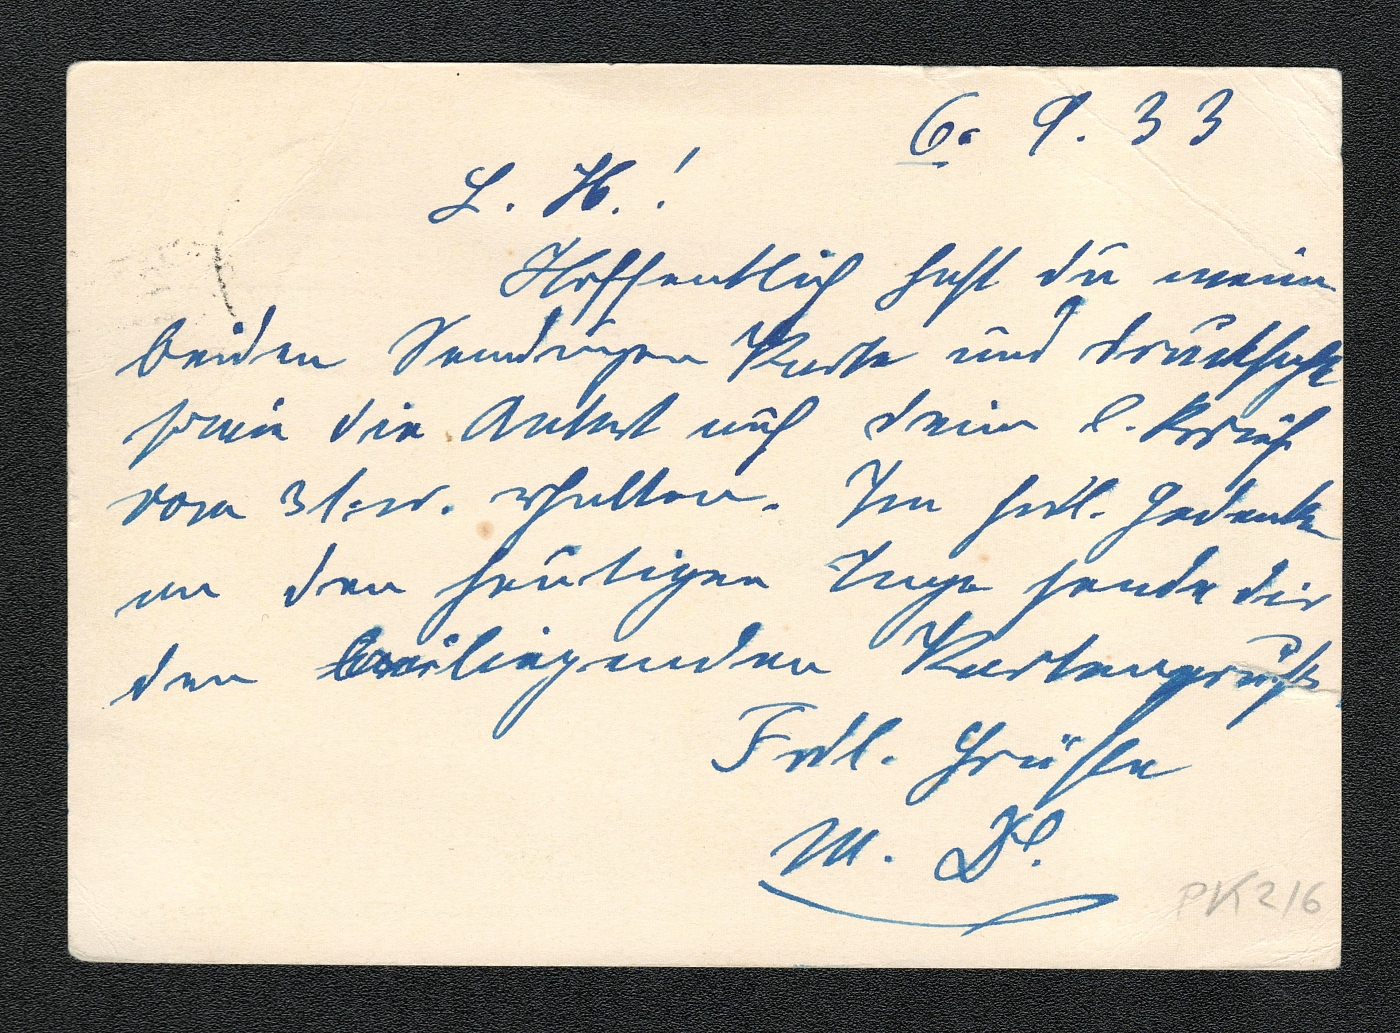 6. 9. 33
L. H.!
Hoffentlich hast du meine
beiden Sendungen Karte und Drucksache
sowie die Antwort auf deine l. Brief
vom 31. erhalten. Im frdl. Gedenken
an den heutigen Tage sende dir
den beiliegenden Kartengruß
Frdl. Grüße
M.
PK 2/6